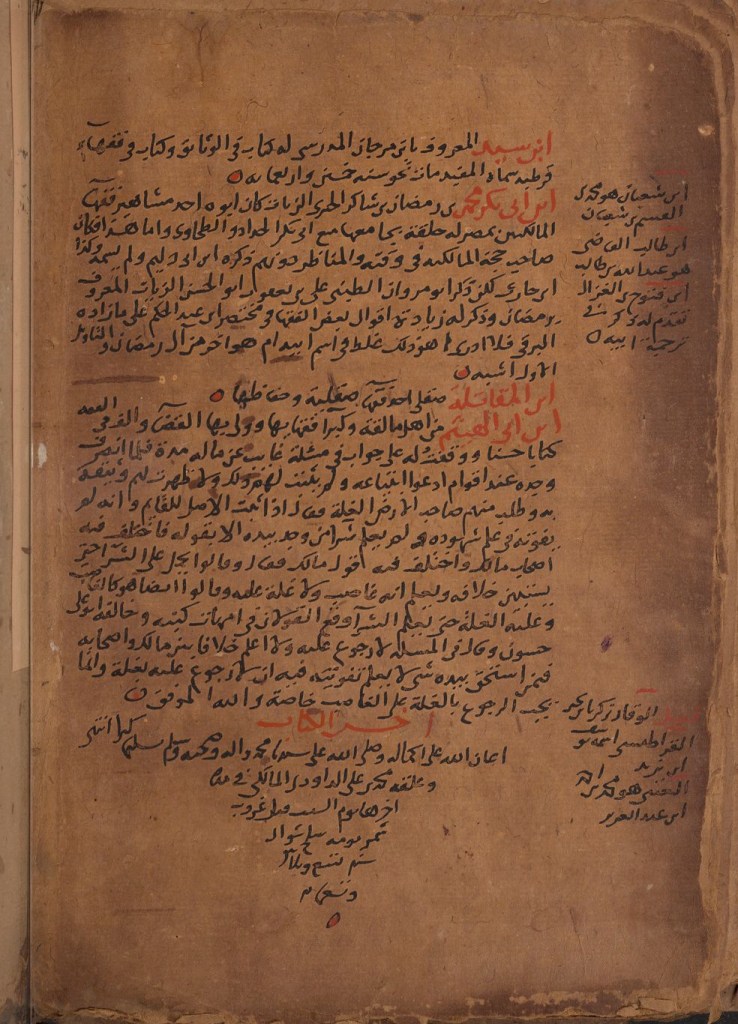 ابن سيد المعروف بابن مرجان المدرسي له كتاب في الوثائق وكتاب في فقهاء
قرطبة سماه المفيد مات نحو سنة خمس واربعماية
ابن ابي بكر محمد بن رمضان بن شاكر الحيري الزيات كان ابوه احد مشاهير فقهاء
المالكيين بمصر له حلقة بجامعها مع ابي بكر الحداد والطحاوي واما هذا فكان
صاحب حجة المالكية في وقته والمناظر دونهم ذكره ابن ابي دليم ولم يسمه وكذا
ابن حارث لكن ذكر ابو مروان الطبني علي بن يعقوب ابو الحسن الزيات المعروف
بن رمضان وذكر له زيادة اقوال بعض الفقهاء في مختصر ابن عبد الحكم على ما زاده
البرقي فلا ادري اهو ذلك غلط في اسم ابيه ام هو اخر من آل رمضان والتاويل
الاول اشبه
صقلي احد فقهاء صقلية وحفاظها
ابن ابي الهيثم من اهل مالقة وكبرا فقهايها وولي بها القضا والف في الفقه
كتابا حسنا ووقفت له على جواب في مسئلة غايب عن ماله مدة فلما انصرف
وجده عند اقوام ادعوا ابتياعه ولم يثبت لهم ذلك
وطلب منهم صاحب الارض الغلة فقال اذا ثبت الاصل للقايم وانه لم
يفوته في علم شهوده ولم يعلم شرا من وجد بيده الا بقوله فاختلف فيه
اصحاب مالك واختلف فيه اقول مالك فقال وقالوا يحمل على الشرا حتى
يستبين خلافه ويعلم انه غاصب ولا غلة عليه وقالوا ايضا هو كالغاصب
وعليه الغلة حتى يعلم الشرا وقع القولان في امهات كتبه وخالفه ابو علي
حسون وقال في المسئلة لا رجوع عليه ولا اعلم خلافا بين مالك واصحابه
فيمن استحق بيده شي لا يعلم تفويته فيه انه لا رجوع عليه بغلة وانما
يجب الرجوع بالغلة على الغاصب خاصة والله الموفق
اخر الكتاب
اعان الله على اكماله وصلى الله على سيدنا محمد واله وصحبه وسلم تسليما كثيرا انتهى
وعلقه محمد بن علي الداودي المالكي في مدة
اخرها يوم السبت قبل غروب
شمس يومه سلخ شوال
سنة تسع وثلاثين
وتسعماية
ابن شعبان هو محمد بن
القسم بن شعبان
ابن طالب القاضي
هو عبد الله بن طالب
ابن فتوح بن الغزال
تقدم له ذكر في
ترجمة ابيه
الوقار زكريا بن يحيى
القراطيسي اسمه
ابن يزيد
هو محمد بن
ابن عبد العزيز